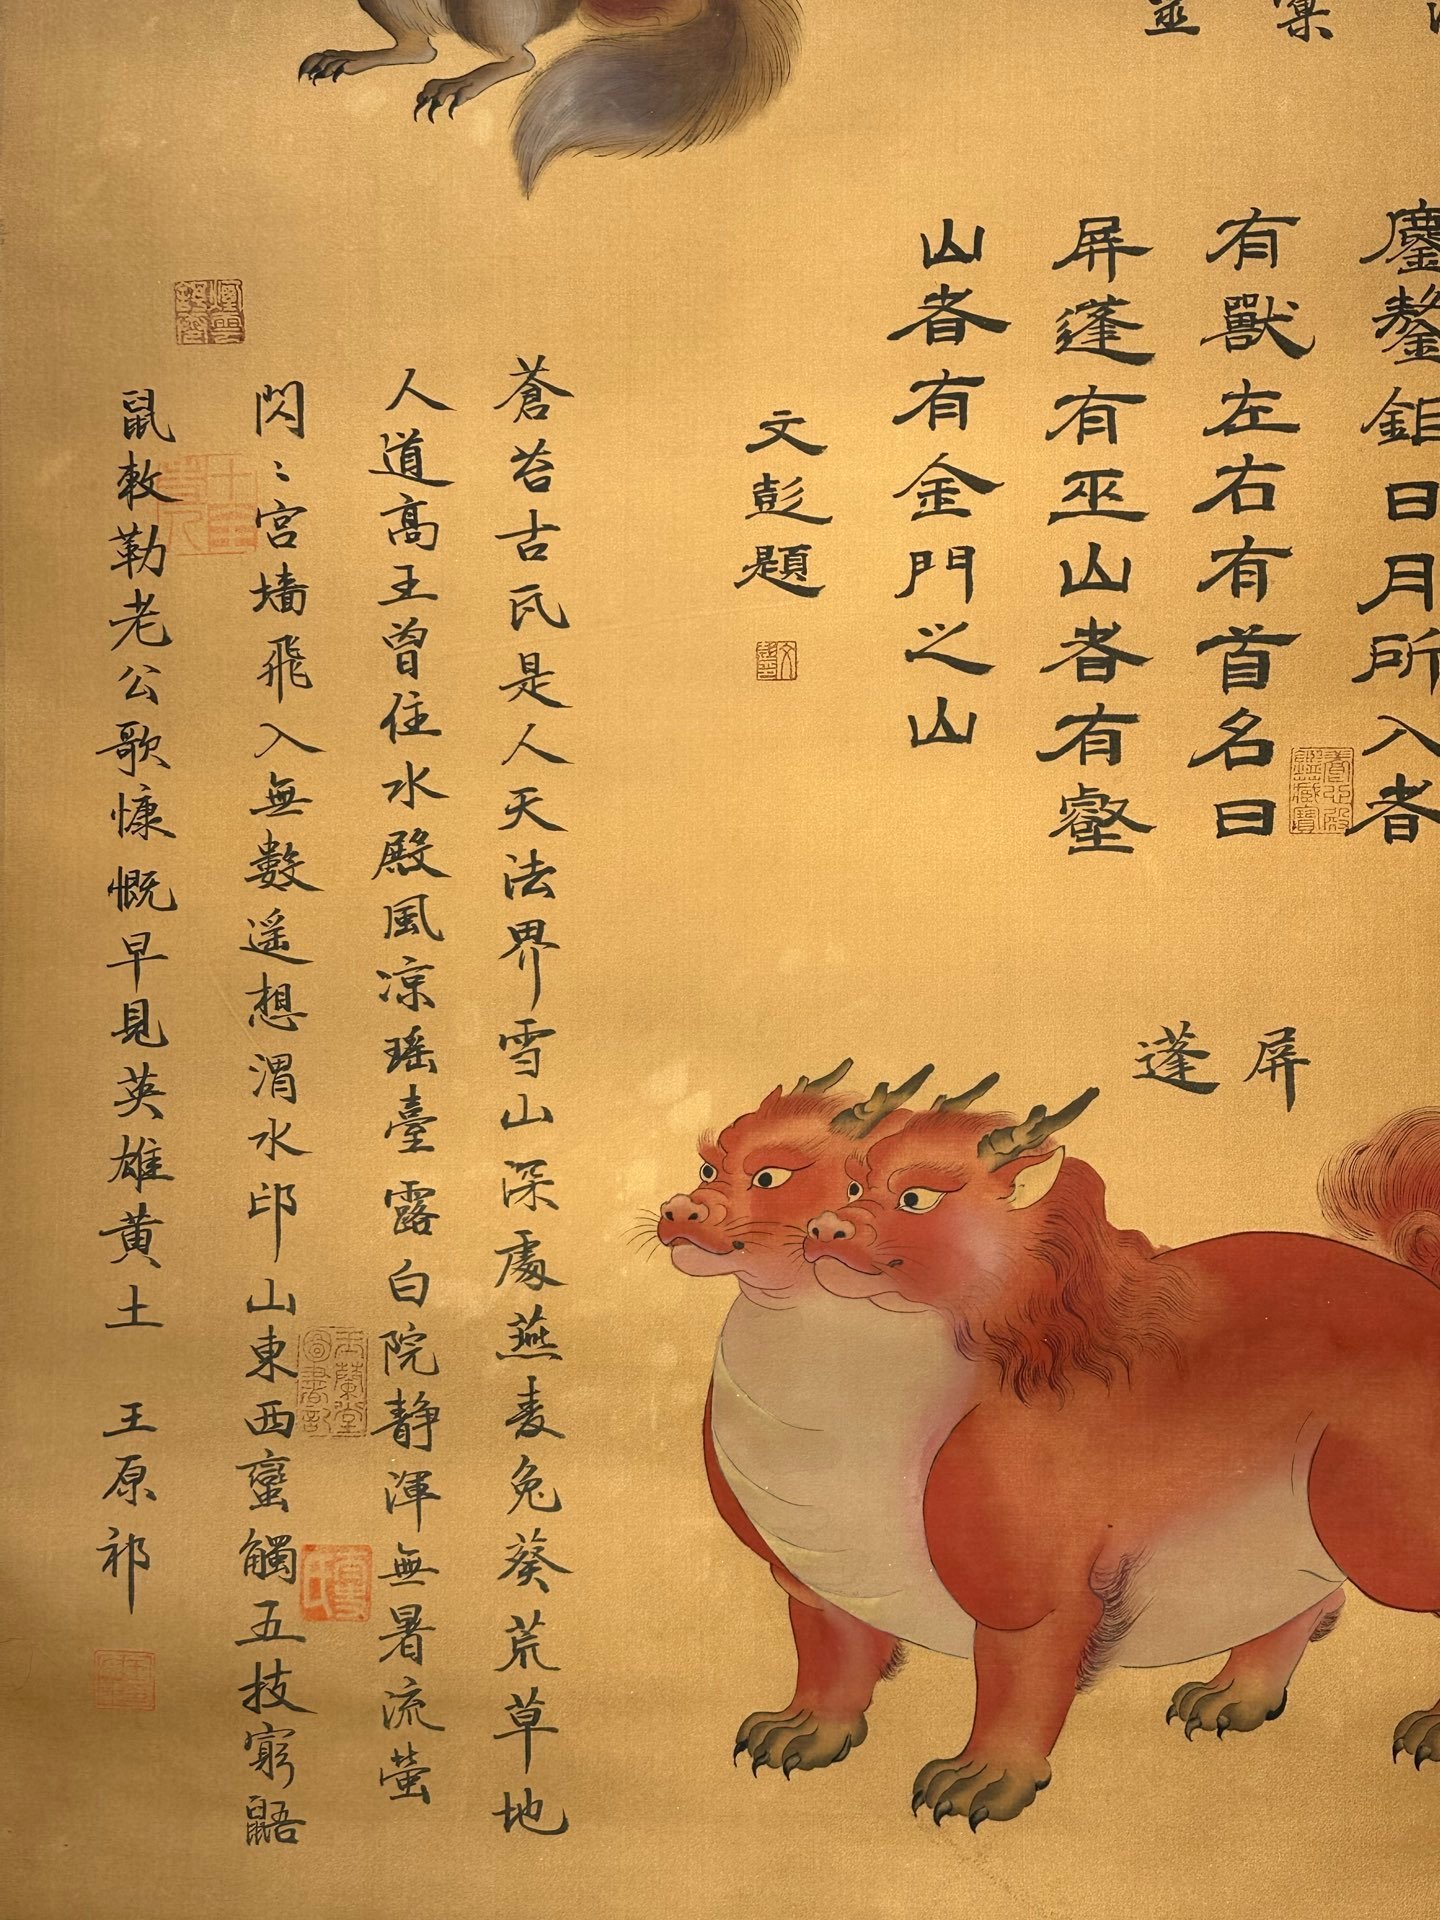 鏖鏊鉅日月所入者
有獸左右有首名曰
屏蓬有巫山者有壑
山者有金門之山
文彭題
屏蓬
蒼苔古瓦是人天法界雪山深處燕麦兔葵荒草地
人道高王曾住水殿風凉瑶臺露白院静渾無暑流螢
閃〻宮墻飛入無數遥想渭水邙山東西蠻觸五技窮鼯
鼠敕勒老公歌慷慨早見英雄黄土 王原祁